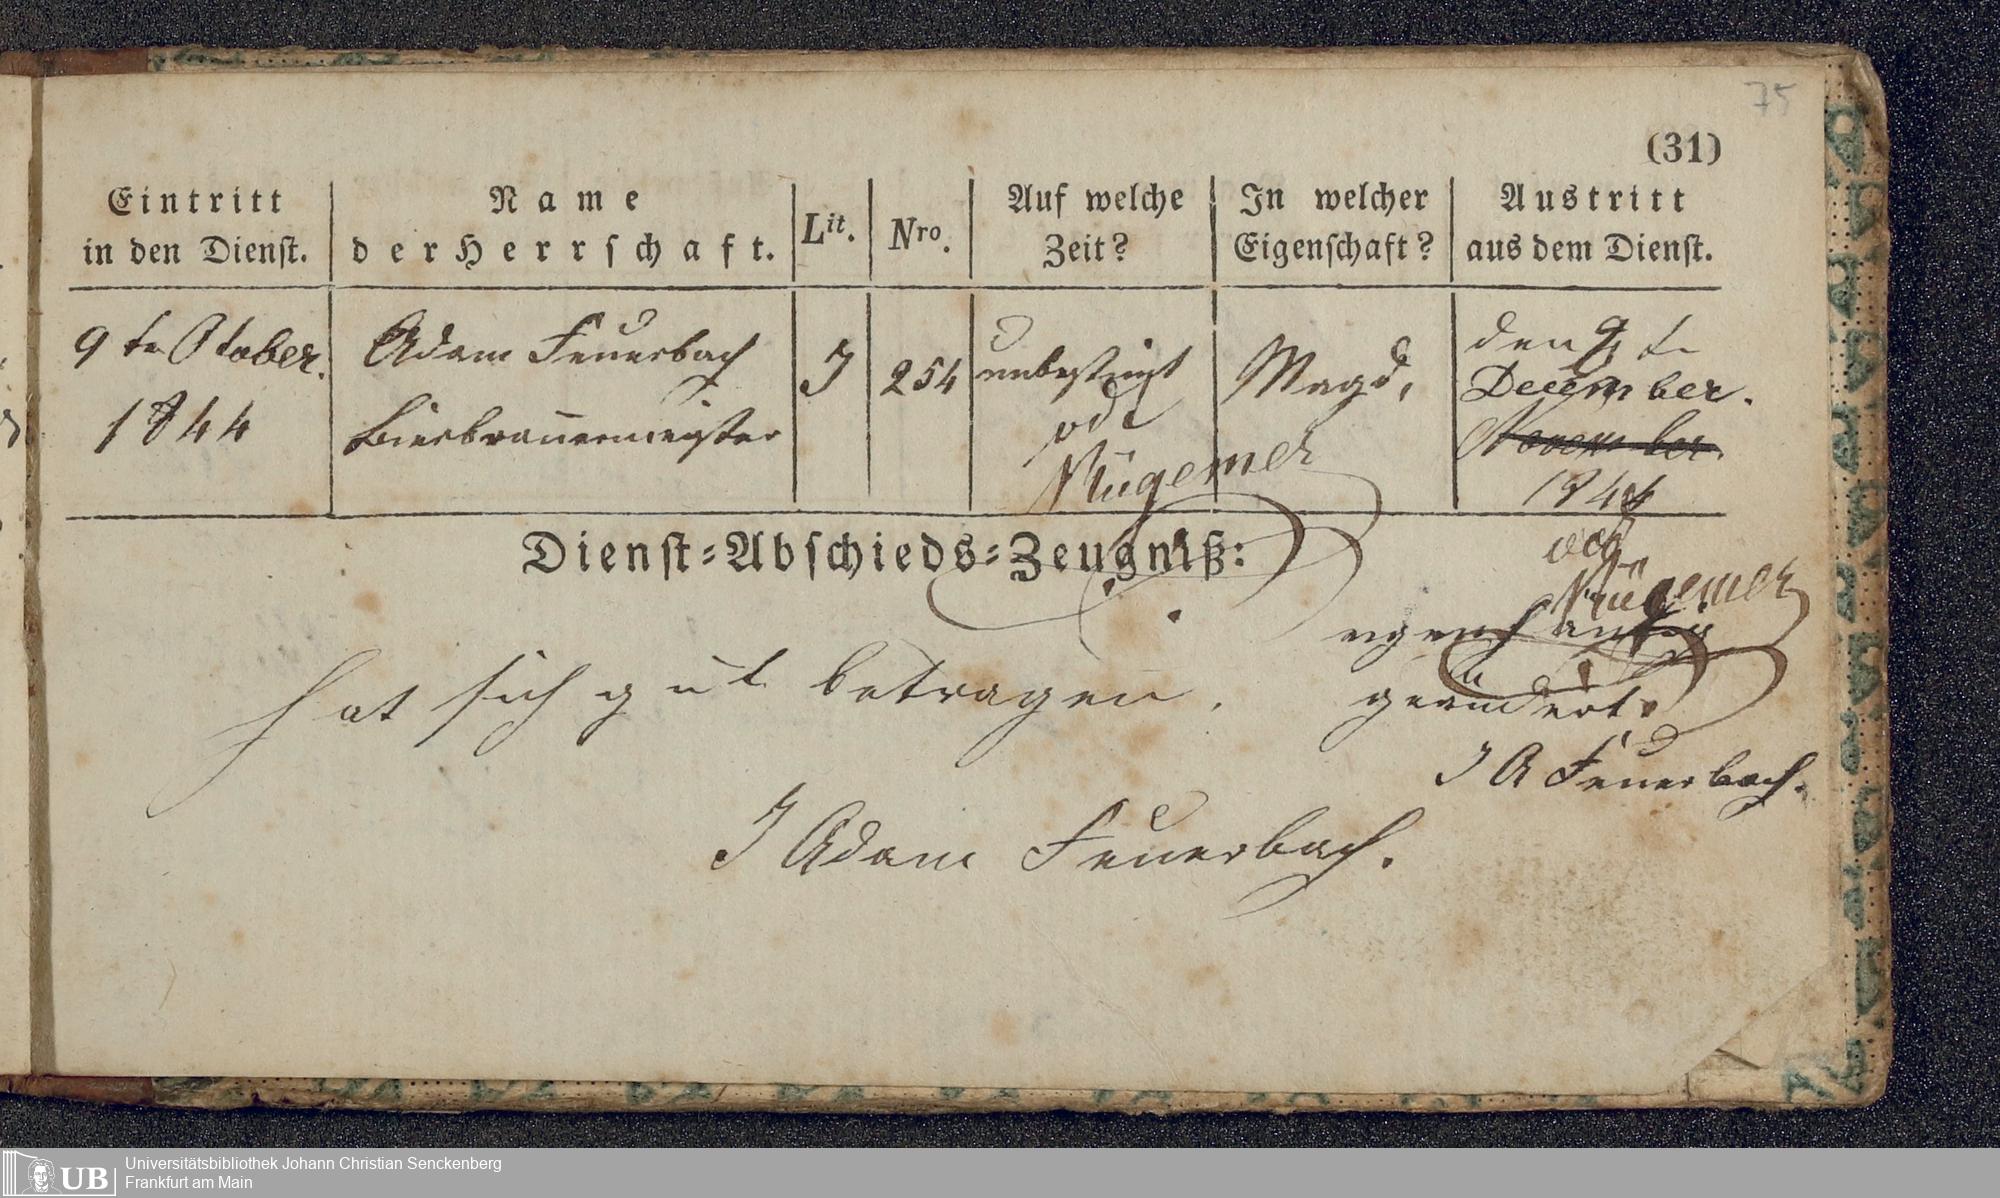 75
(31)
Eintritt
in den Dienst.
Name
der Herrschaft.
Lit.
Nro.
Auf welche
Zeit?
In welcher
Eigenschaft?
Austritt
aus dem Dienst.
9te Octaber.
1844
Adam Feuerbach
Bierbrauermeister
J
254
unbestimt
Magd,
den 9te
December.
November.
1844
Dienst-Abschieds-Zeugniß:
hat sich gut betragen.
eigenhändig
geändert.
J A Feuerbach.
J Adam Feuerbach.
UB
Universitätsbibliothek Johann Christian Senckenberg
Frankfurt am Main